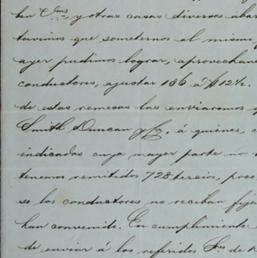 y otras casas diversas abar
tuvimos que someternos al mismo p
ayer pudimos lograr, aprovechan
conductores, ajustar 186 á 12%.
de estas remesas las enviaremos y
Smith Duncan y Cº, á quienes, c
indicadas cuya mayor parte no
tenemos remitidos 728 tercios, pues
se los conductores no reciban fij
han convenido. En cumplimiento
de enviar á los referidos Sres de